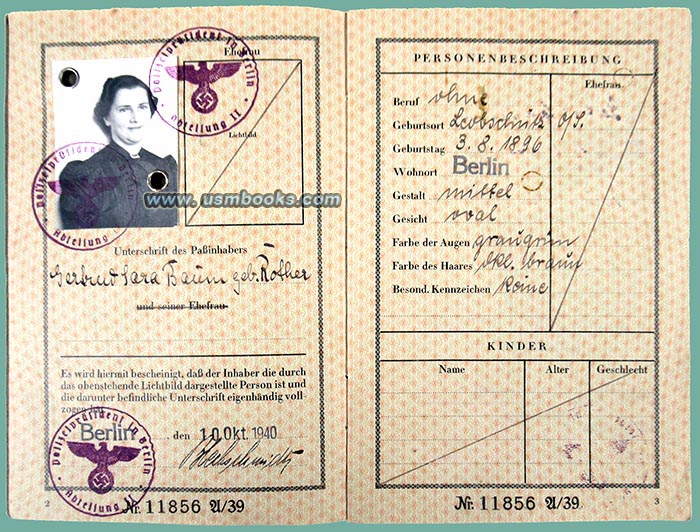 Ehefrau
Lichtbild
Polizeipräsident in Berlin
Abteilung II
Polizeipräsident in Berlin
Abteilung
www.usmbooks.com
Unterschrift des Paßinhabers
Gertrud Sara Baum geb. Rother
und seiner Ehefrau
Es wird hiermit bescheinigt, daß der Inhaber die durch
das obenstehende Lichtbild dargestellte Person ist und
die darunter befindliche Unterschrift eigenhändig voll-
zogen hat.
Berlin, den 10. Okt. 1940
Polizeipräsident in Berlin
Abteilung II
2 Nr. 11856 A/39
PERSONENBESCHREIBUNG
Ehefrau
Beruf ohne
Geburtsort Leobschütz O/S.
Geburtstag 3.8.1896
Wohnort Berlin
Gestalt mittel
Gesicht oval
Farbe der Augen graugrün
Farbe des Haares dkl. braun
Besond. Kennzeichen keine
KINDER
Name Alter Geschlecht
Nr. 11856 A/39 3